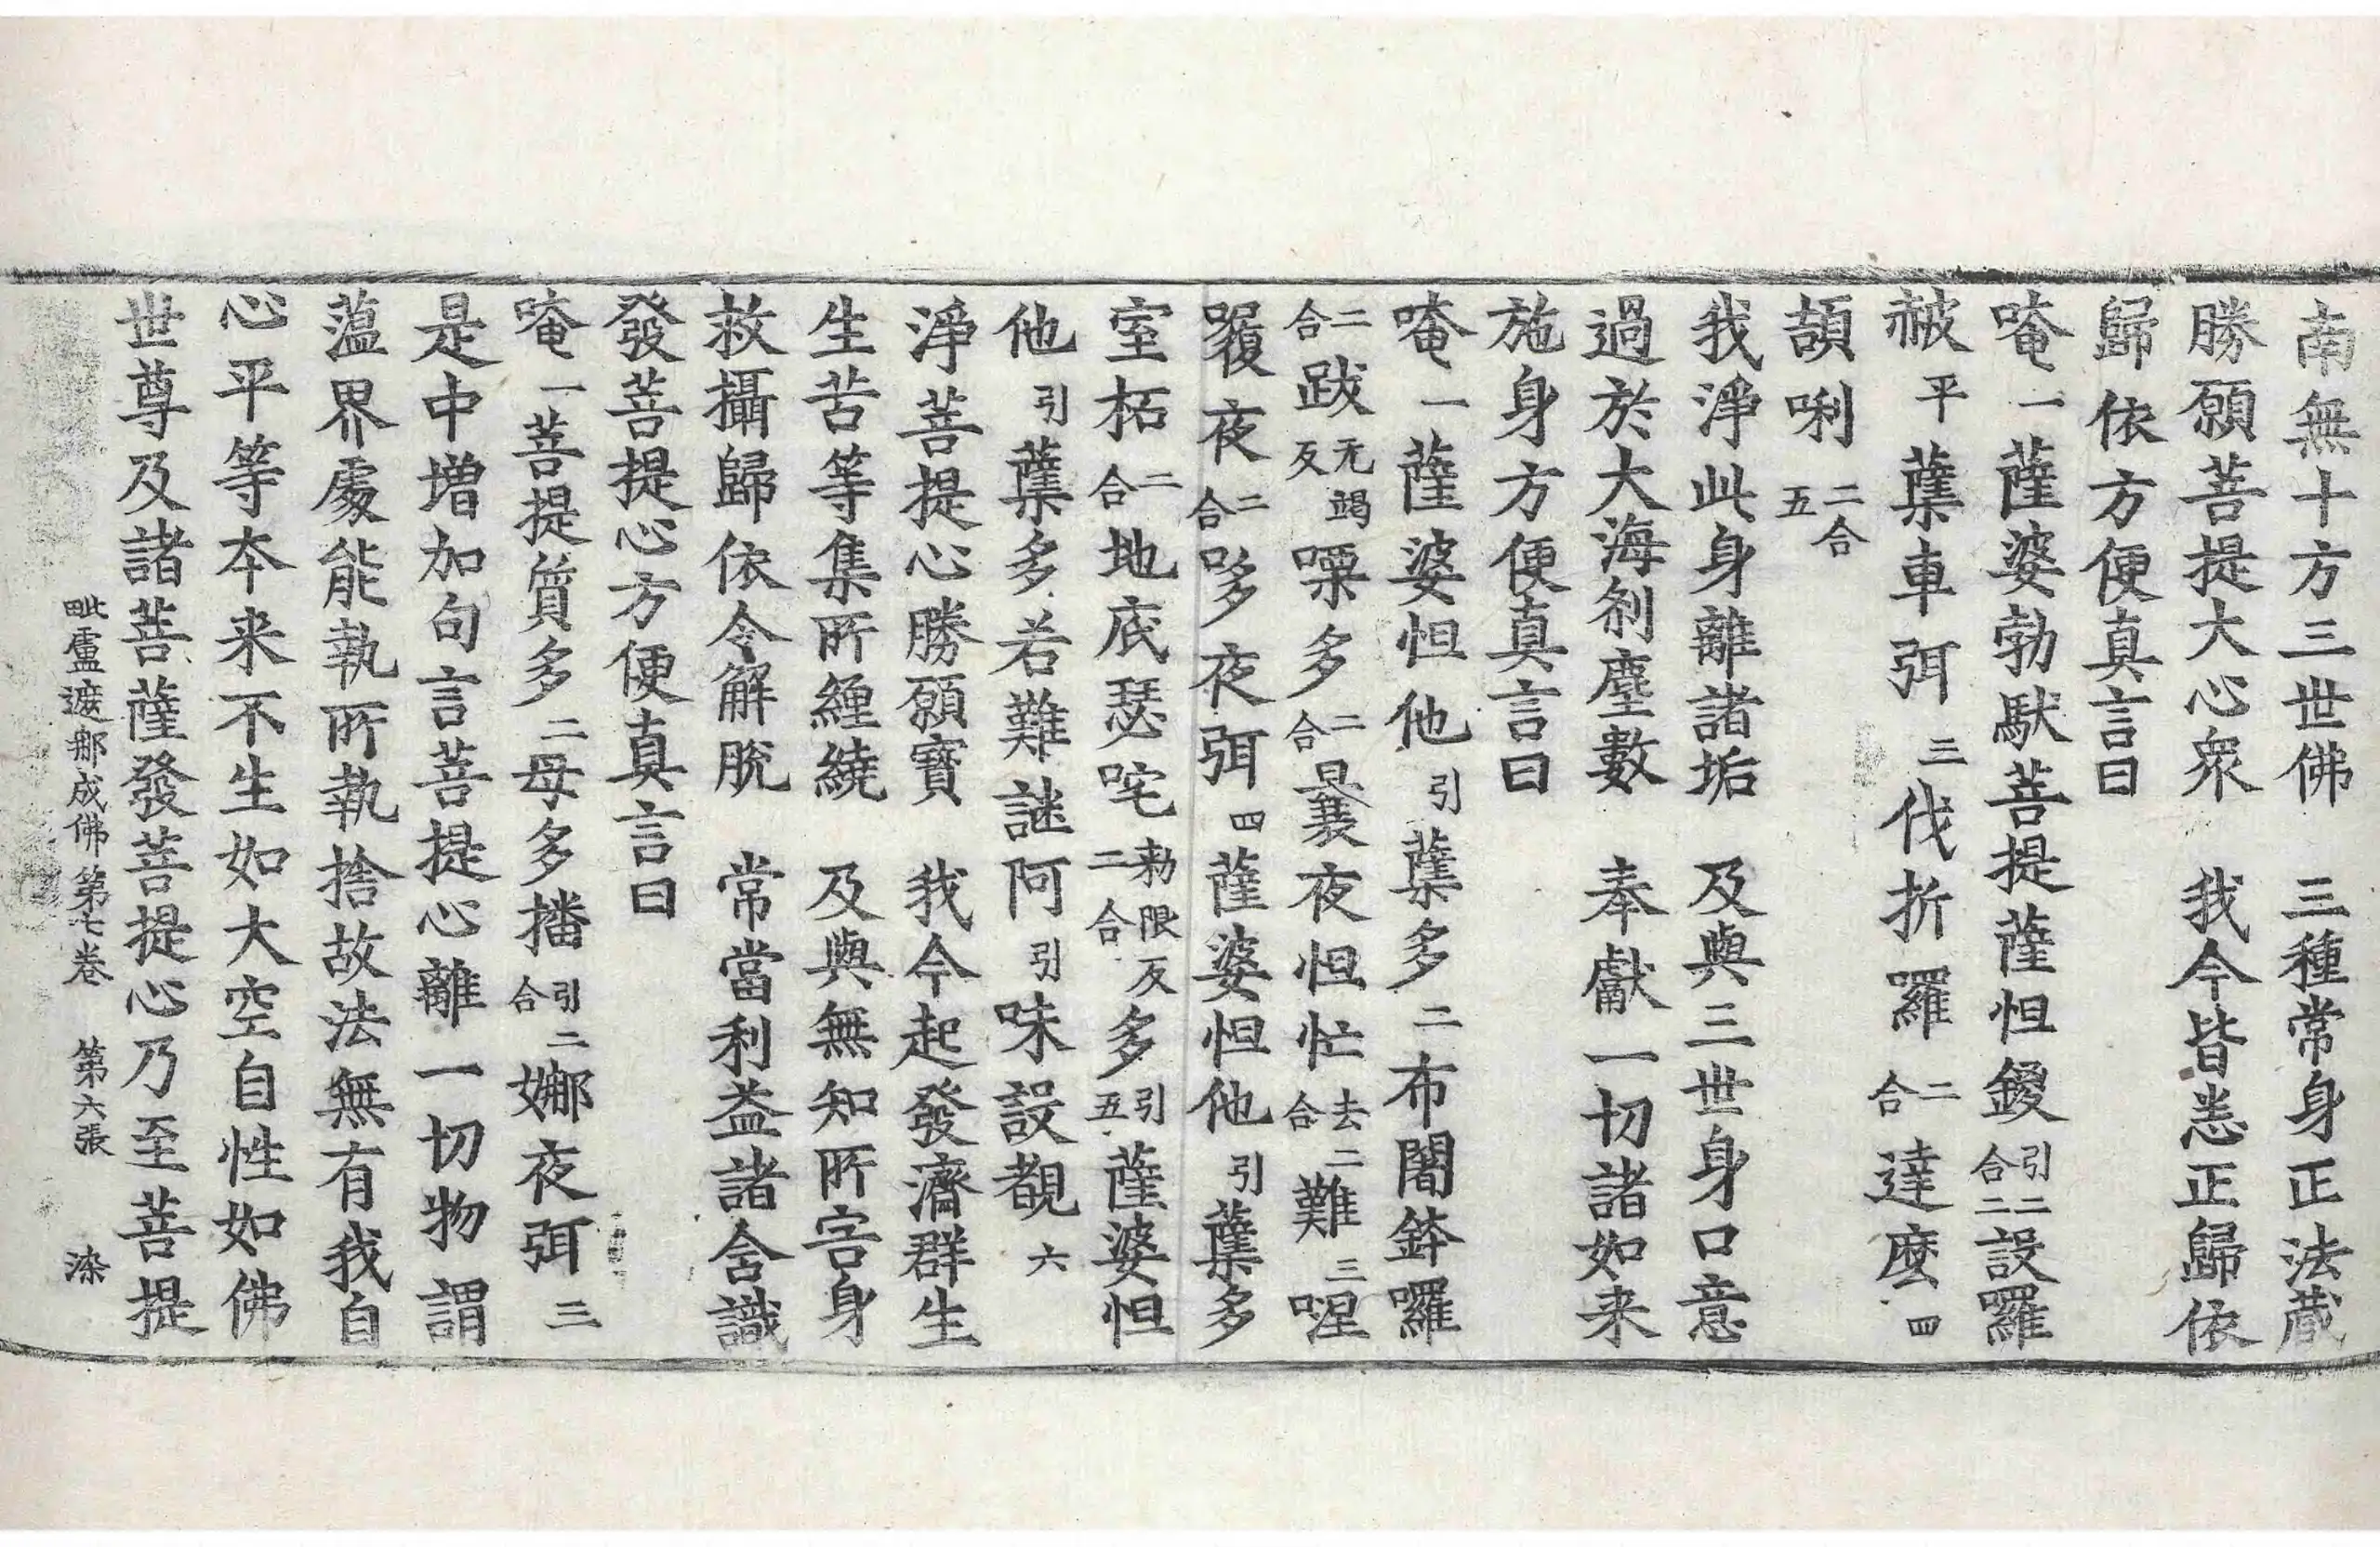 南無十方三世佛　三種常身正法藏
勝願菩提大心衆　我今皆悉正歸依
歸依方便真言曰
唵一薩婆勃馱菩提薩怛鑁引二合二設囉
赧平蘖車弭三伐折囉二合達麽四
頡唎二合五
我淨此身離諸垢　及與三世身口意
過於大海刹塵數　奉獻一切諸如来
施身方便真言曰
唵一薩婆怛他引蘖多二布闍鉢囉
二合跋无竭反㗚多二合曩夜怛忙去二合難三哩
𡃤夜二合哆夜弭四薩婆怛他引蘖多
室柘二合地底瑟咤勑限反二合多引五薩婆怛
他引蘖多若難謎阿引味設覩六
淨菩提心勝願寶　我今起發濟群生
生苦等集所纏繞　及與無知所害身
救攝歸依令解脫　常當利益諸含識
發菩提心方便真言曰
唵一菩提質多二母多播引二合娜夜弭三
是中增加句言菩提心離一切物謂
蕰界處能執所執捨故法無有我自
心平等本来不生如大空自性如佛
世尊及諸菩薩發菩提心乃至菩提
毗盧遮那成佛第七卷　第六張　染